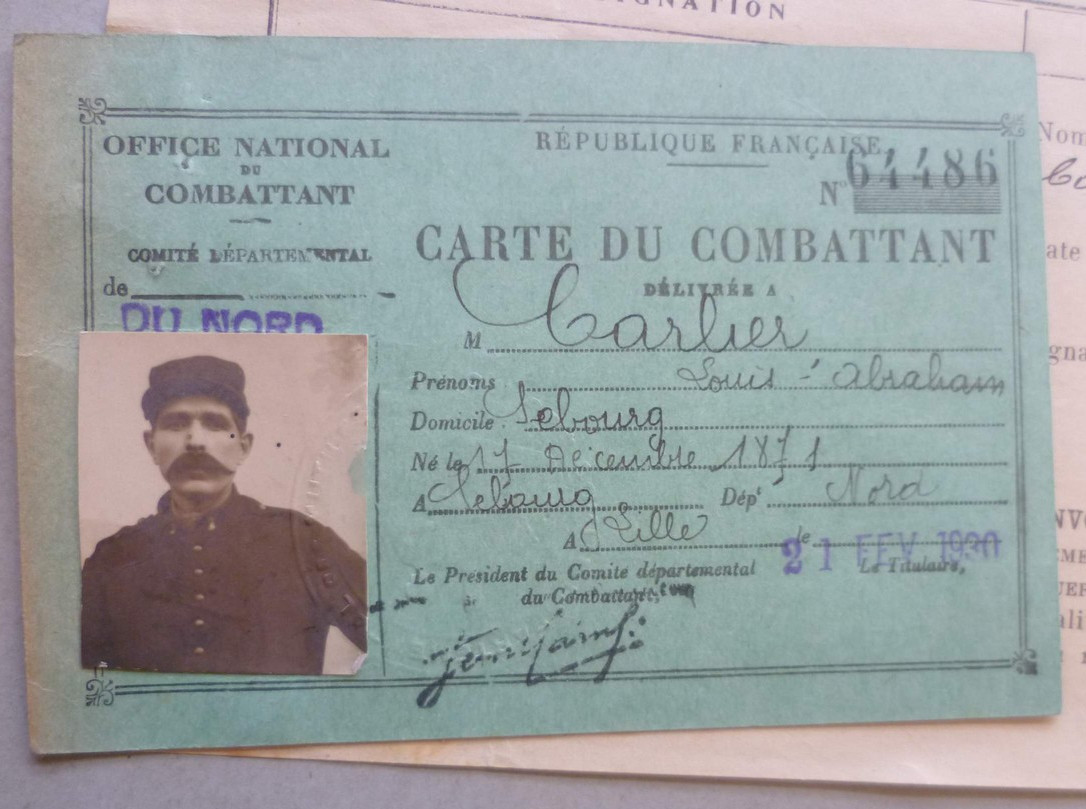 GNATION
OFFICE NATIONAL
DU
COMBATTANT
COMITÉ DÉPARTEMENTAL
de
DU NORD
RÉPUBLIQUE FRANÇAISE
N° 64486
CARTE DU COMBATTANT
DÉLIVRÉE A
M Carlier
Prénoms Louis - Abraham
Domicile Sebourg
Né le 17 Décembre 1871
A Sebourg Dépt Nord
A Lille le 21 FEV. 1930
Le Président du Comité départemental
du Combattant,
Le Titulaire,
Nom